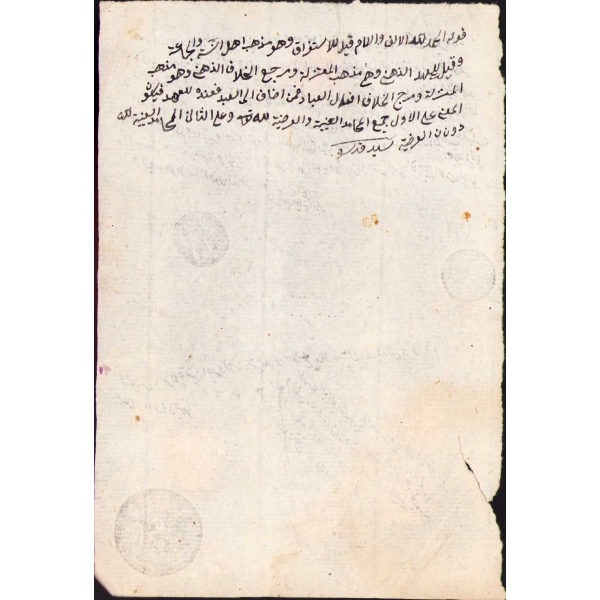 قوله الحمد لله الالف واللام قيل للاستغراق وهو مذهب اهل السنة والجماعة
وقيل للعهد الذهني وهو مذهب المعتزلة ومرجع الخلاف الذهني وهو مذهب
المعتزلة ومرجع الخلاف افعال العباد فمن اضاف الى العبد فعنده للعهد فيكون
المعنى على الاول جميع المحامد العينية والعرضية لله تعه وعلى الثانى المحامد العينية لله
دون العرضية سيد قدس سره